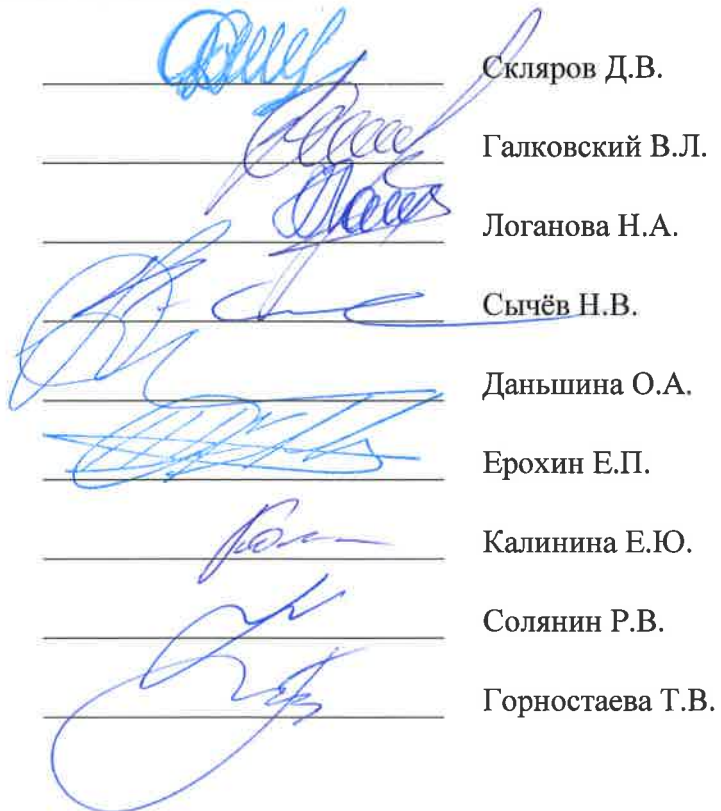 Скляров Д.В.
Галковский В.Л.
Логанова Н.А.
Сычёв Н.В.
Даньшина О.А.
Ерохин Е.П.
Калинина Е.Ю.
Солянин Р.В.
Горностаева Т.В.